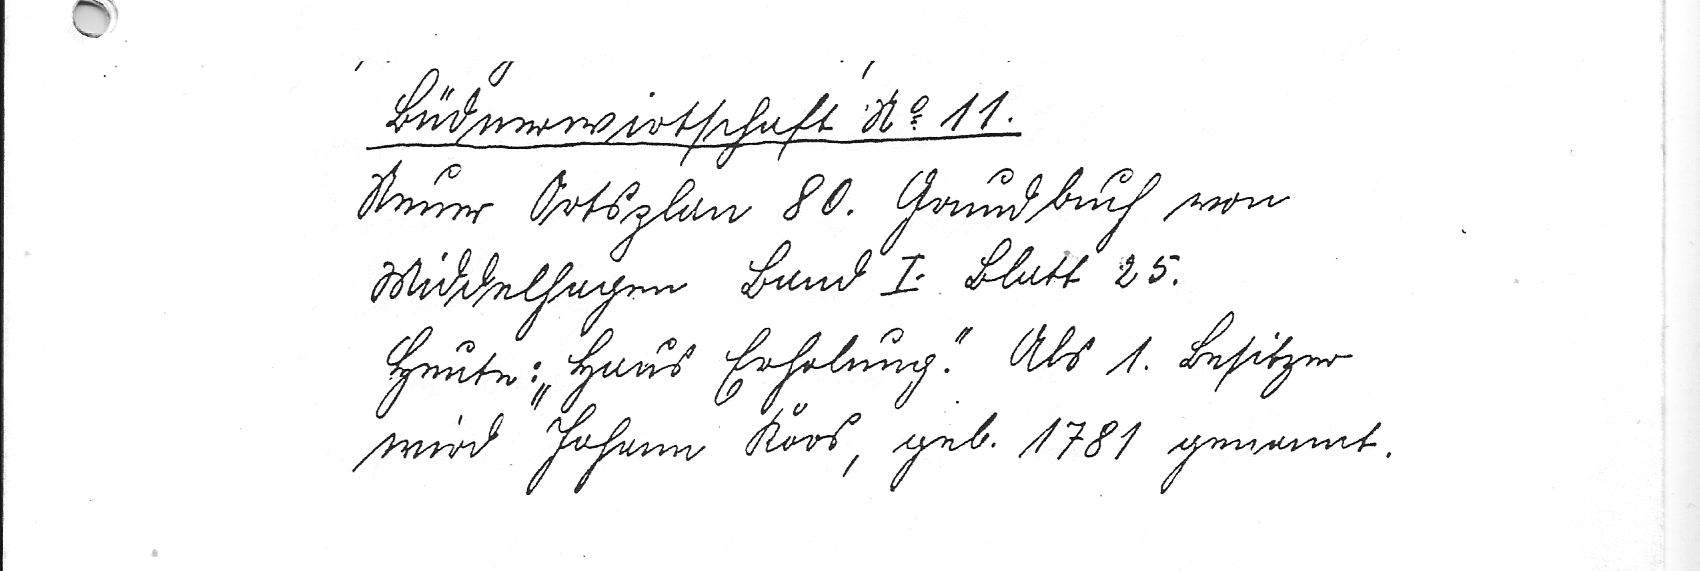 Büdnerwirtschaft No 11.
Neuer Ortsplan 80. Grundbuch von
Middelhagen Band I. Blatt 25.
Heute: „Haus Erholung". Als 1. Besitzer
wird Johann Koos, geb. 1781 genannt.